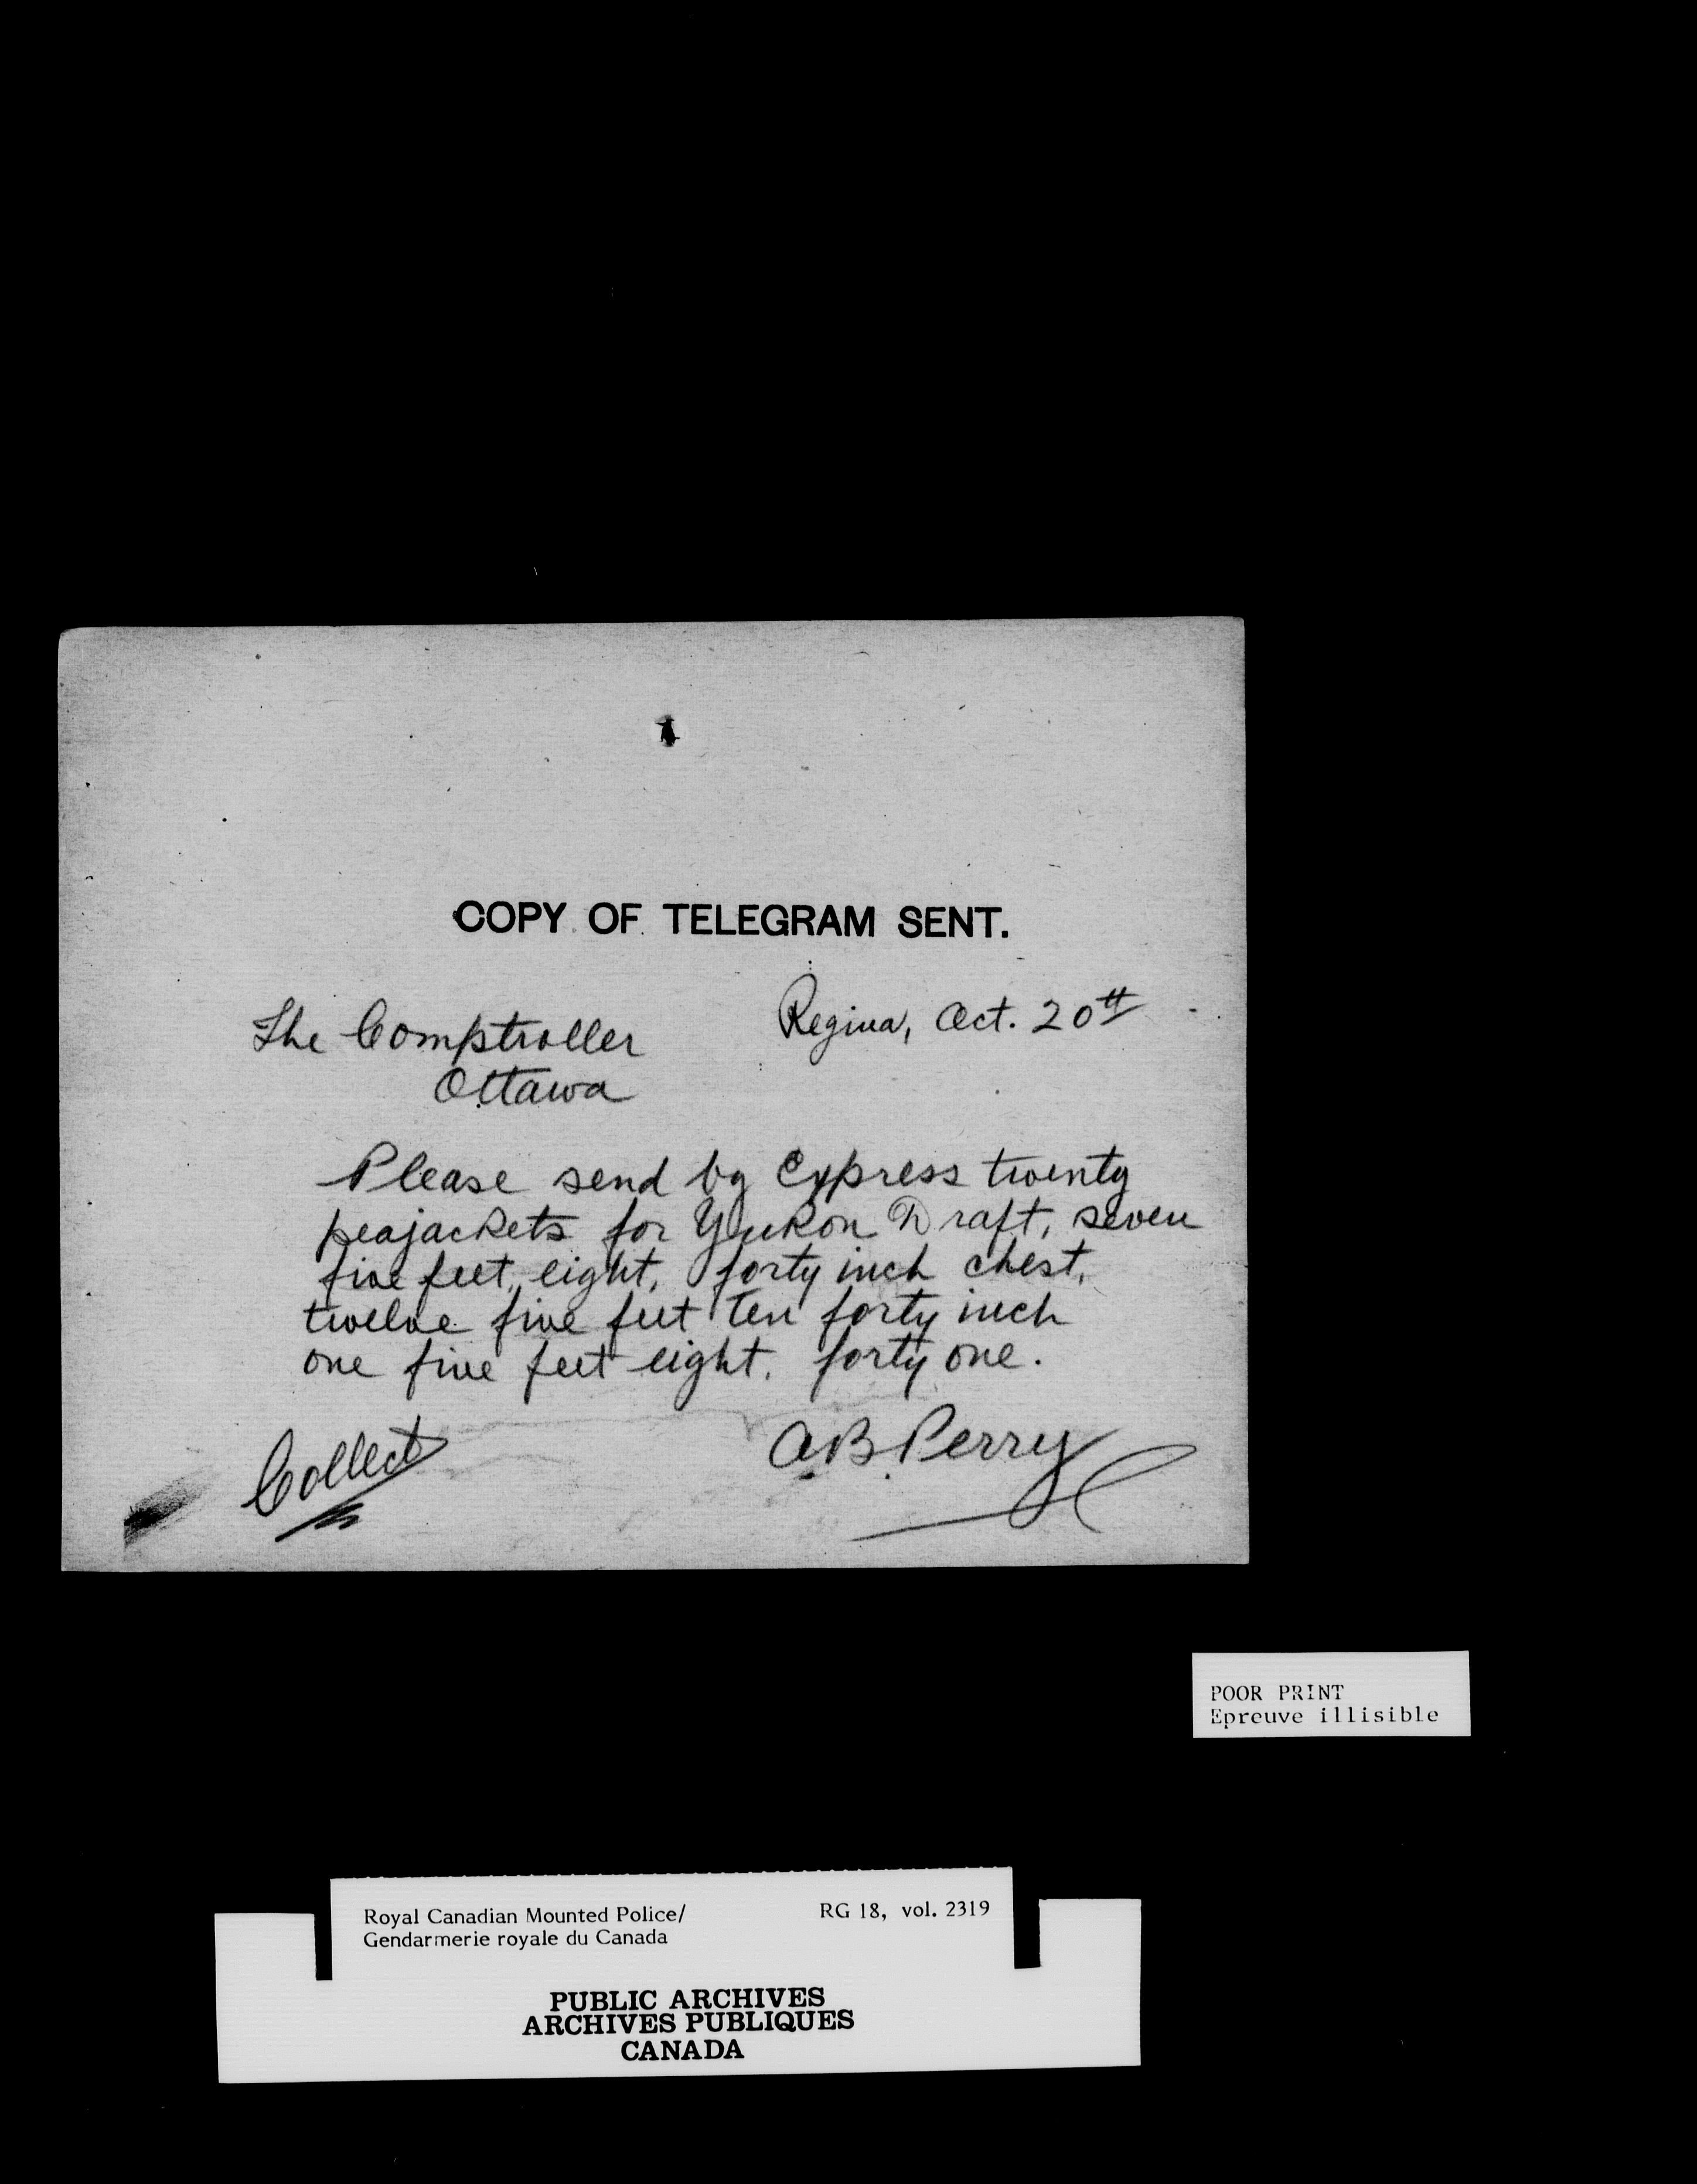 COPY OF TELEGRAM SENT.
Regina, Oct. 20th
The Comptroller
Ottawa
Please send by Express twenty
peajackets for Yukon Draft, seven
five feet, eight, forty inch chest,
twelve five feet ten forty inch
one five feet eight, forty one.
Collect
A.B. Perry
POOR PRINT
Epreuve illisible
Royal Canadian Mounted Police/
Gendarmerie royale du Canada
RG 18, vol. 2319
PUBLIC ARCHIVES
ARCHIVES PUBLIQUES
CANADA